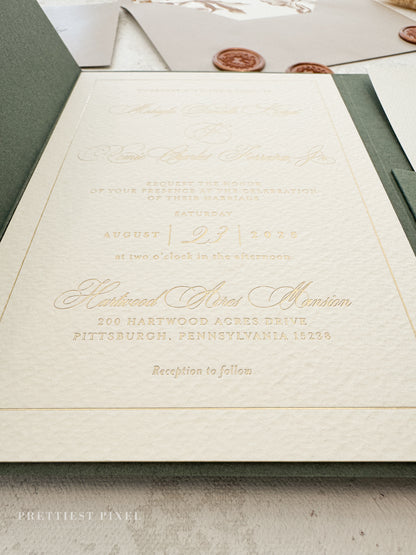 Jr.
REQUEST THE HONOR
OF YOUR PRESENCE AT THE CELEBRATION
OF THEIR MARRIAGE
SATURDAY
AUGUST | 23 | 2025
at two o'clock in the afternoon
Hartwood Acres Mansion
200 HARTWOOD ACRES DRIVE
PITTSBURGH, PENNSYLVANIA 15238
Reception to follow
PRETTIEST PIXEL